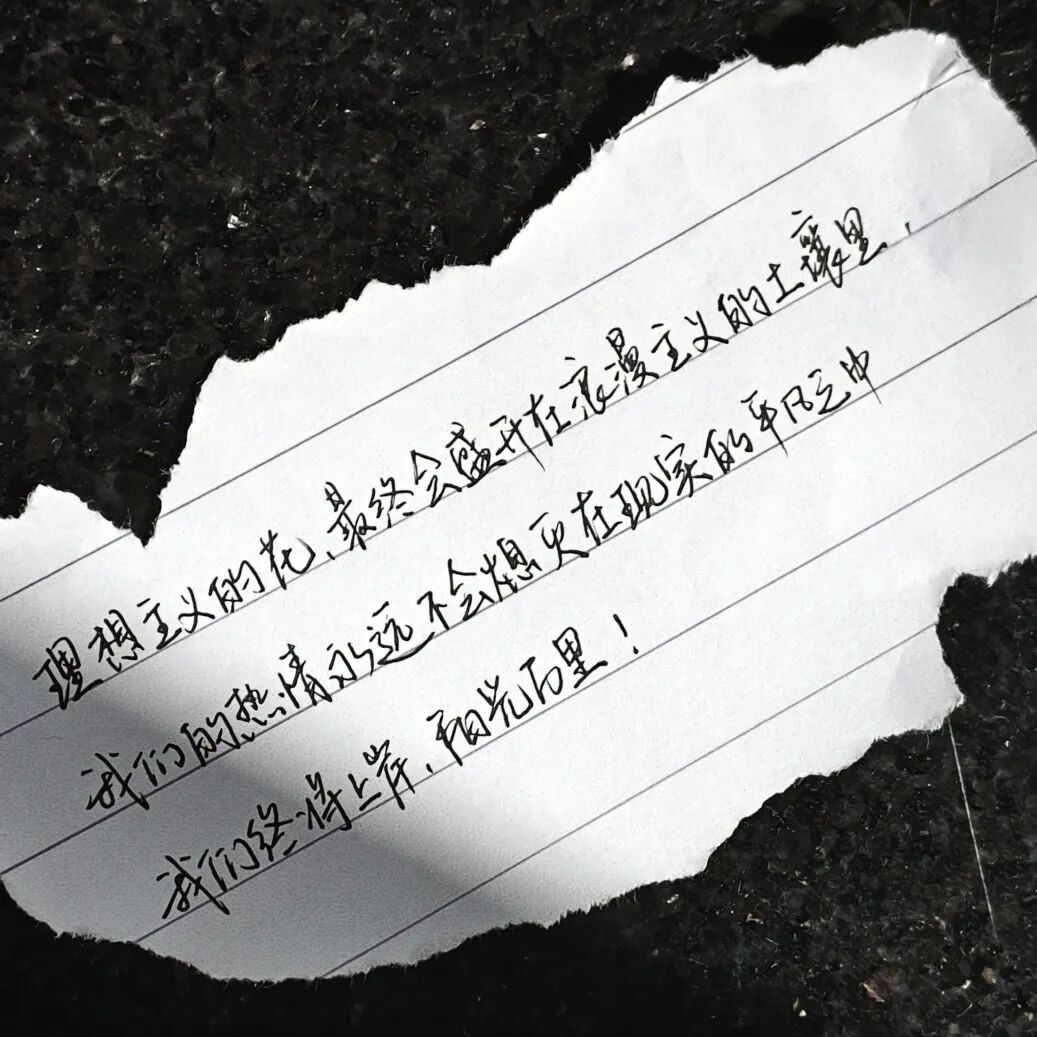 理想主义的花,最终会盛开在浪漫主义的土壤里,
我们的热情永远不会熄灭在现实的平凡之中
我们终将上岸,阳光万里!